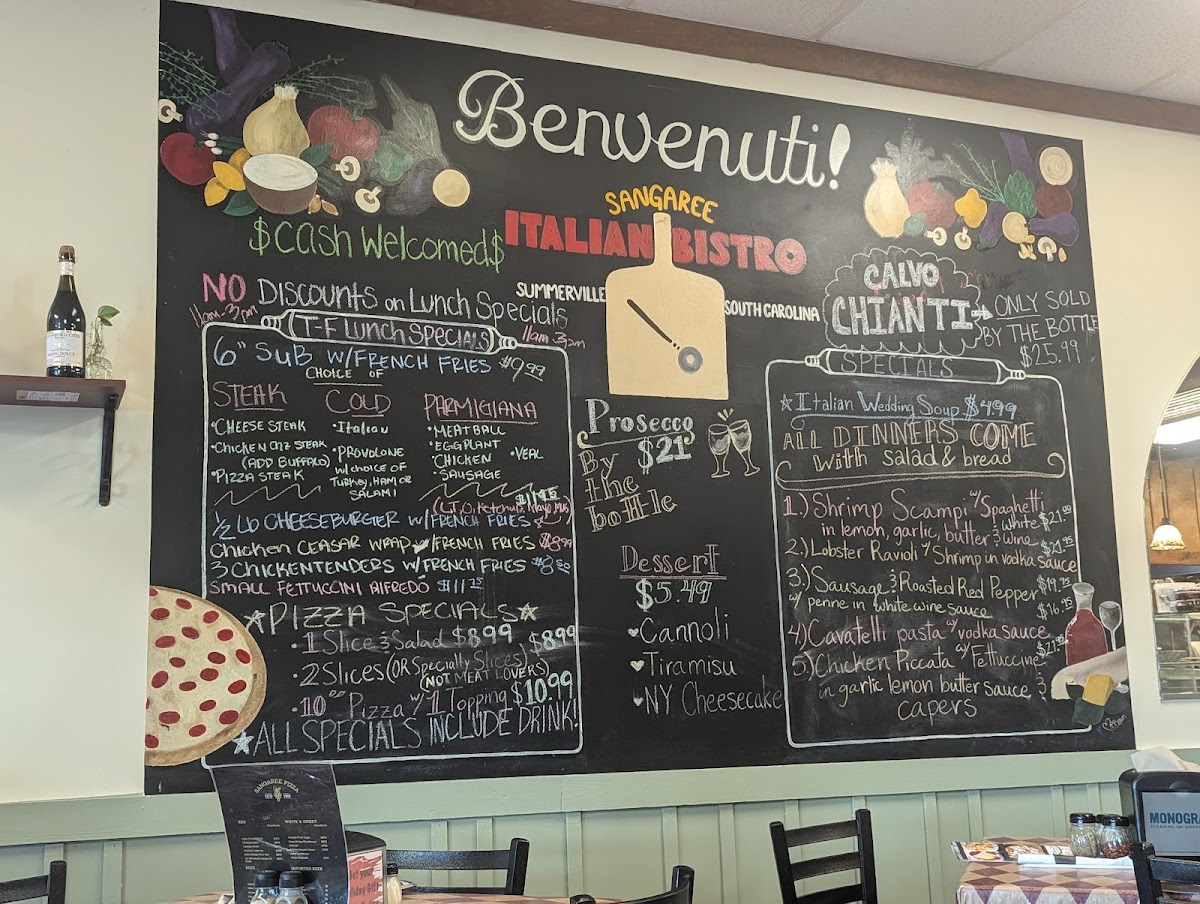 Benvenuti!
SANGAREE
ITALIAN BISTRO
SUMMERVILLE SOUTH CAROLINA
$cash welcomed$
NO DISCOUNTS on Lunch Specials
11am-3pm
T-F Lunch Specials
11am-3pm
6" SUB W/FRENCH FRIES $9.99
CHOICE OF
STEAK
•CHEESE STEAK
•Chicken CHZ STEAK
(ADD BUFFALO)
•PIZZA STEAK
COLD
•Italian
•PROVOLONE
W/CHOICE OF
Turkey, HAM OR
SALAMI
PARMIGIANA
•MEATBALL
•EGGPLANT
•CHICKEN •VEAL
•SAUSAGE
(L,T,O, Ketchup, Mayo, Mus)
1/2 Lb CHEESEBURGER W/FRENCH FRIES
Chicken CEASAR WRAP W/FRENCH FRIES $8.99
3 CHICKENTENDERS W/FRENCH FRIES
SMALL FETTUCCINI ALFREDO
☆PIZZA SPECIALS☆
•1 Slice & Salad $8.99 $8.99
•2 Slices (OR Specialty Slices)
(NOT MEAT LOVERS)
•10" Pizza w/1 Topping $10.99
☆ALL SPECIALS INCLUDE DRINK!
Prosecco
$21
By
the
bottle
Dessert
$5.49
♥Cannoli
♥Tiramisu
♥NY Cheesecake
CALVO
CHIANTI
ONLY SOLD
BY THE BOTTLE
$25.99
SPECIALS
☆Italian Wedding Soup $4.99
ALL DINNERS COME
with salad & bread
1.) Shrimp Scampi w/Spaghetti
in lemon, garlic, butter & white wine $21.95
2.) Lobster Ravioli w/ Shrimp in vodka sauce $21.95
3.) Sausage & Roasted Red Pepper
w/ penne in white wine sauce $19.95
4) Cavatelli pasta w/ vodka sauce $16.95
5) Chicken Piccata w/ Fettuccine
in garlic lemon butter sauce &
capers
SANGAREE PIZZA
MONOGRA